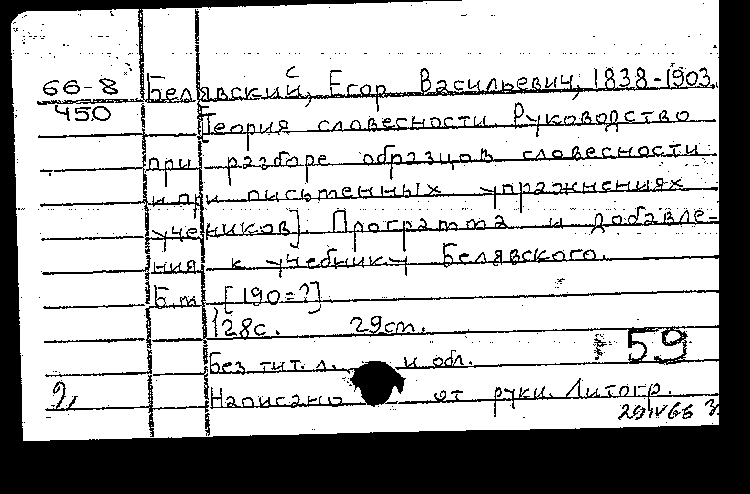 66-8 Белявский, Егор Васильевич, 1838-1903.
450 [Теория словесности. Руководство
при разборе образцов словесности
и при письменных упражнениях
учеников]. Программа и добавле-
ния к учебнику Белявского.
Б.м. [190=?].
128с. 29см.
Без тит. л. и обл.
59
2, Написано от руки. Литогр.
29 IV 66